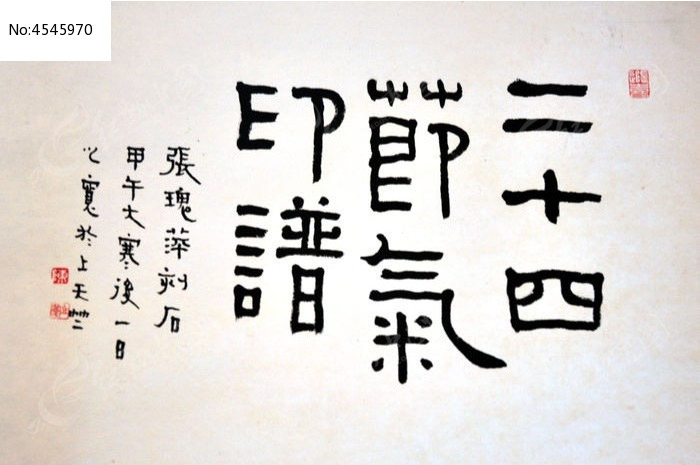 No:4545970
二十四
節氣
印譜
張瑰萍刻石
甲午大寒後一日
心寬於上天竺